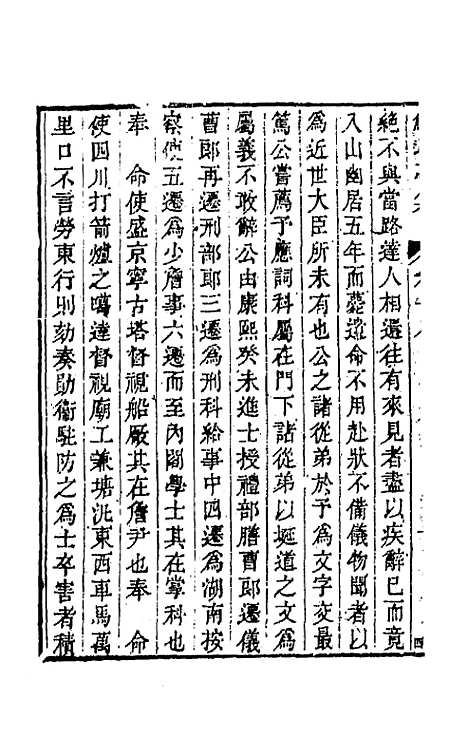 絶不與當路達人相還往有來見者盡以疾辭已而竟
入山幽居五年而薨遺命不用赴狀不備儀物聞者以
爲近世大臣所未有也公之諸從弟於予爲文字交最
篤公嘗薦予應詞科屬在門下諸從弟以埏道之文爲
屬義不敢辭公由康熙癸未進士授禮部膳曹郎遷儀
曹郎再遷刑部郎三遷爲刑科給事中四遷爲湖南按
察使五遷爲少詹事六遷而至內閣學士其在掌科也
奉　命使盛京寧古塔督視船厰其在詹尹也奉　命
使四川打箭爐之噶達督視廟工兼塘汛東西車馬萬
里口不言勞東行則劾奏勛衞駐防之爲士卒害者積
四